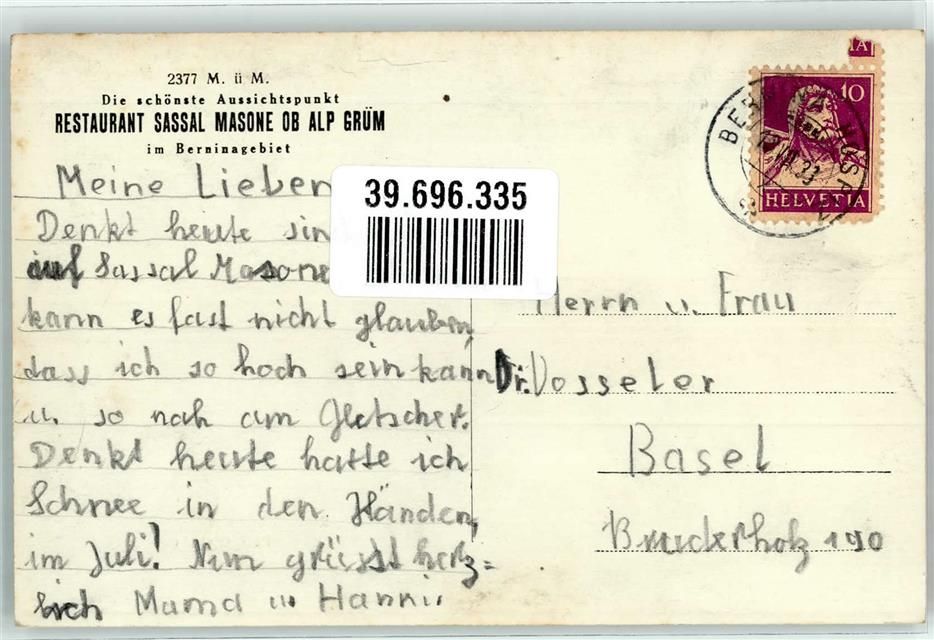 2377 M. ü M.
Die schönste Aussichtspunkt
RESTAURANT SASSAL MASONE OB ALP GRÜM
im Berninagebiet
Meine Lieben
Denkt heute sin
auf Sassal Masone
kann es fast nicht glauben,
dass ich so hoch sein kann
u. so nah am Gletscher.
Denkt heute hatte ich
Schnee in den Händen,
im Juli! Nun grüsst herz=
lich Mama u Hanni.
39.696.335
10
HELVETIA
Herrn u. Frau
Dr. Vosseler
Basel
Bruderholz 190